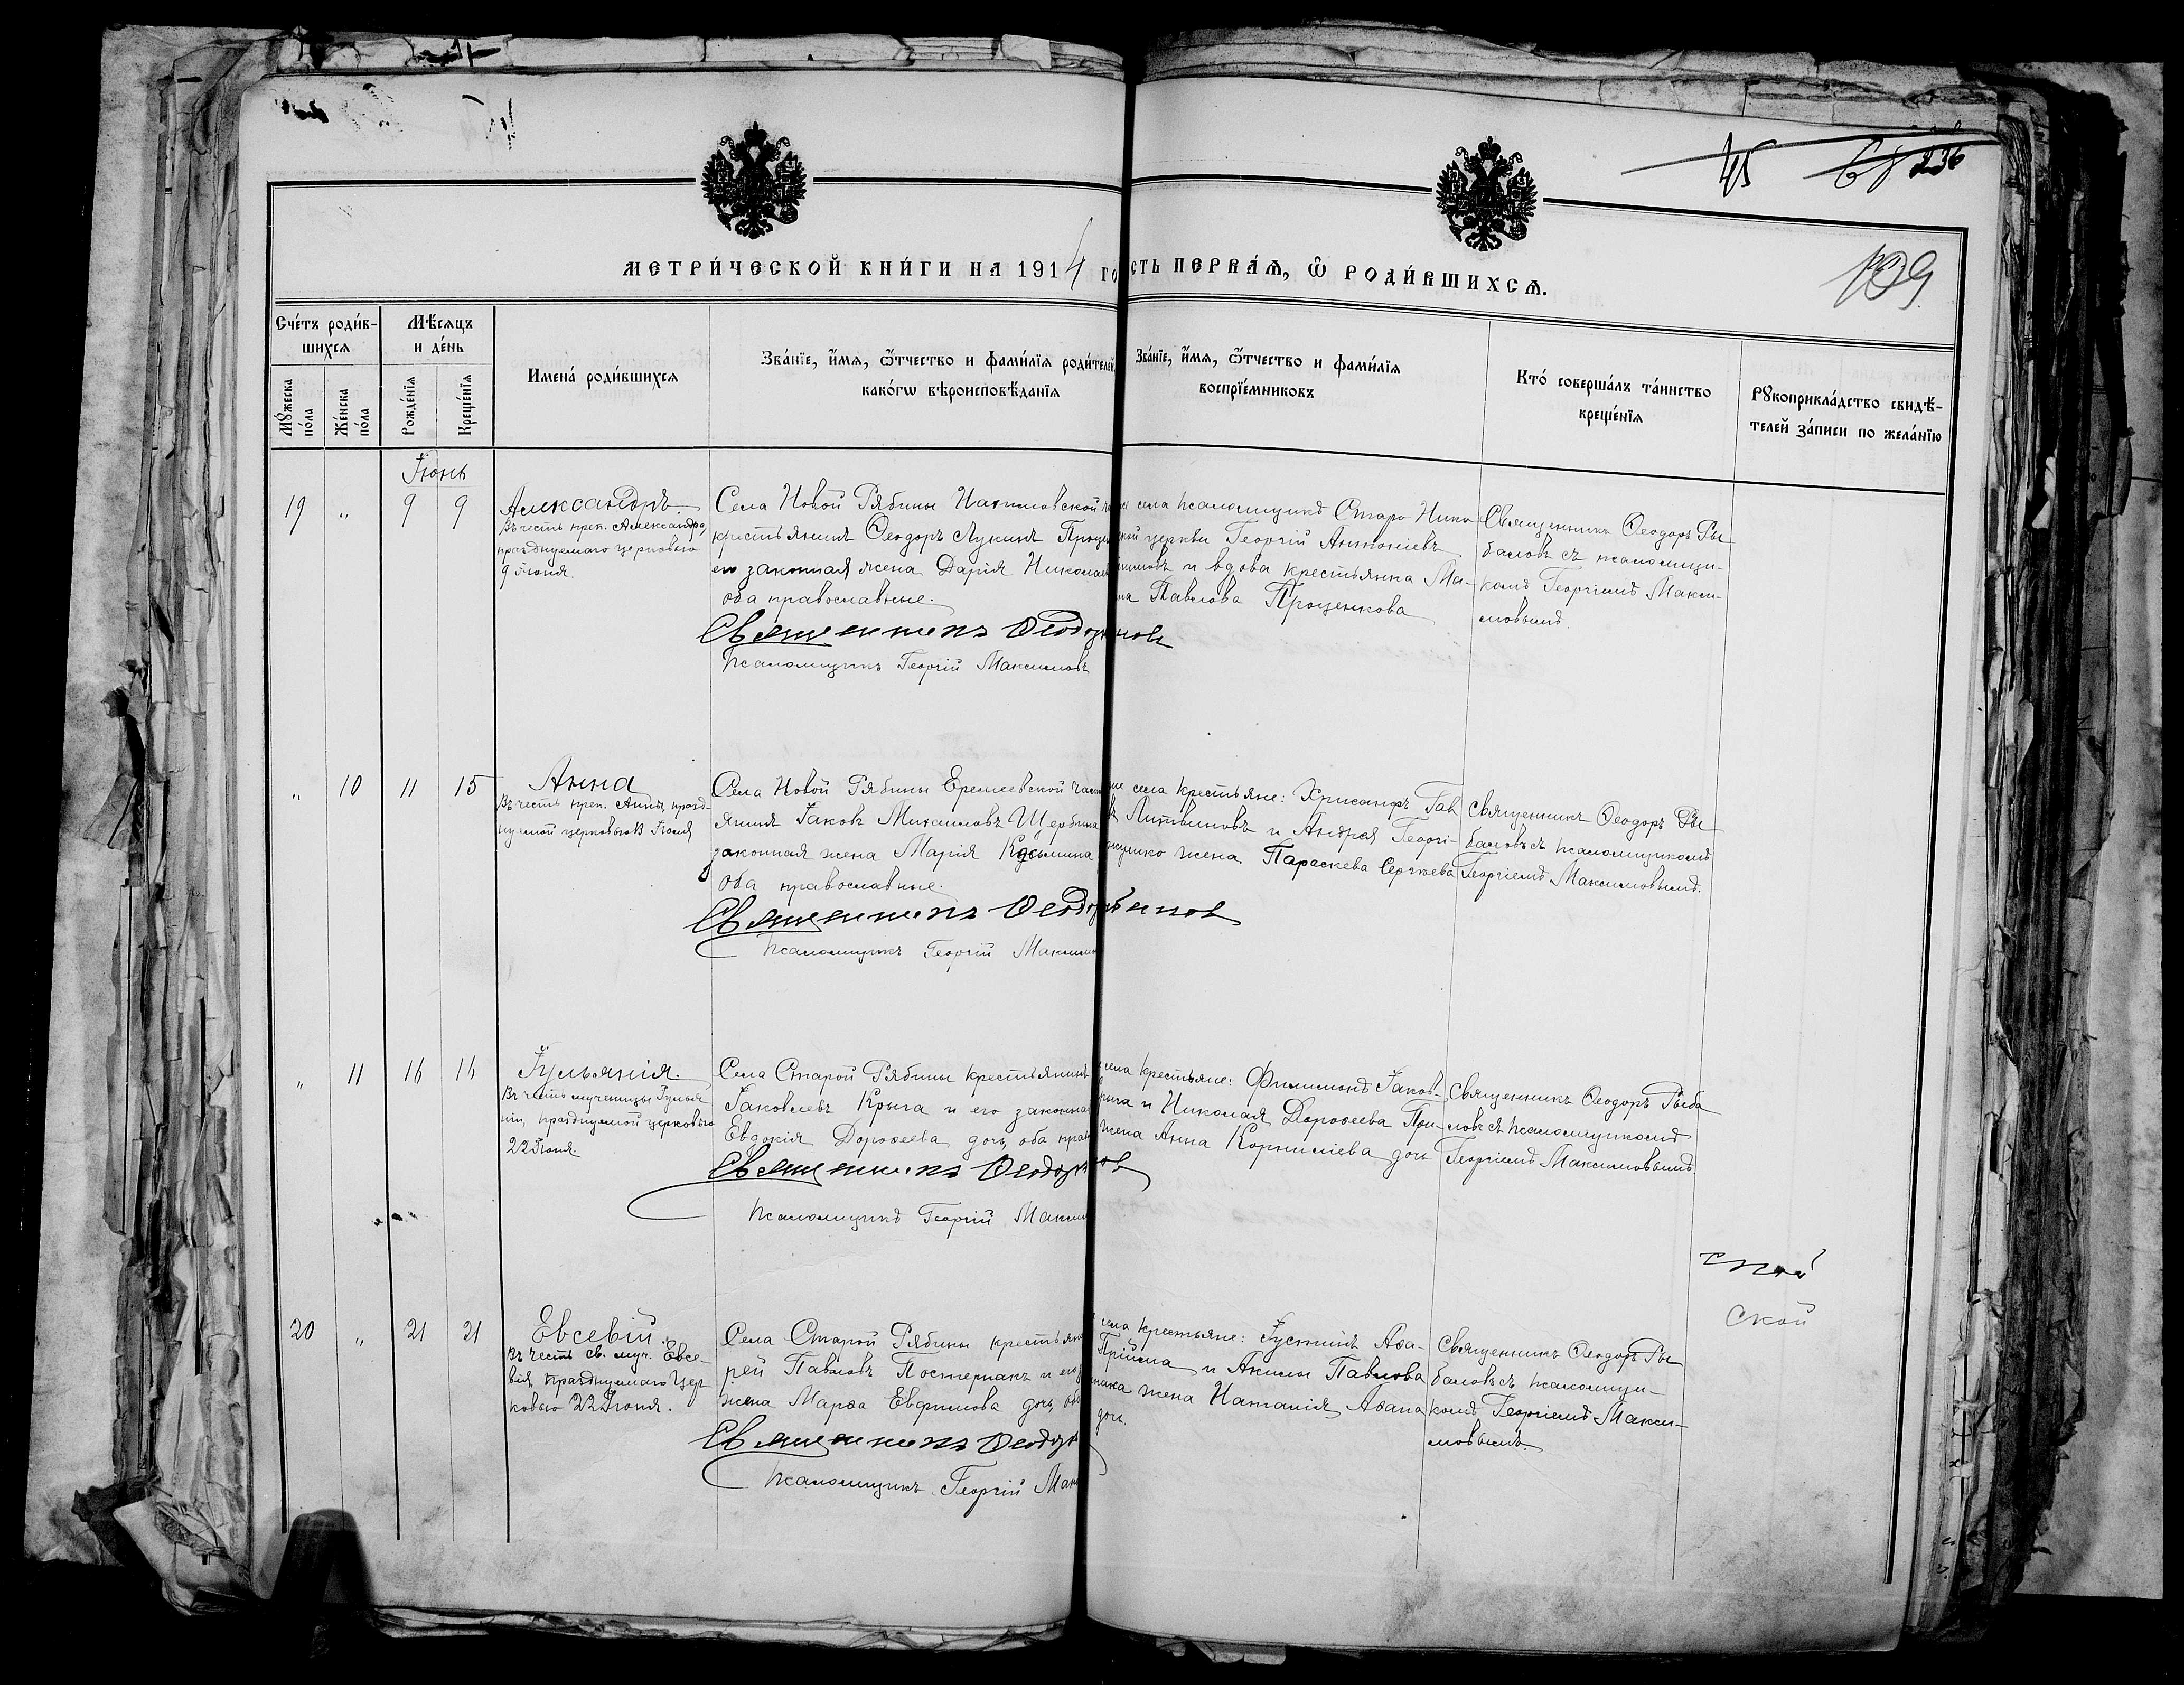 45 68 236
109
МЕТРИ́ЧЕСКОЙ КНИ́ГИ НА 1914 ГО
СТЬ ПЕРВА́Я, Ѿ РОДИ́ВШИХСЯ.
Сче́тъ роди́в-
шихся
Мꙋ́жеска по́ла
Же́нска по́ла
Мѣ́сяцъ
и де́нь
Рожде́нїя
Креще́нїя
Имена́ роди́вшихся
Зва́нїе, и҆́мя, ѻ҆́тчество и фами́лїя роди́телей,
како́гѡ вѣроисповѣ́данїя
Зва́нїе, и҆́мя, ѻ҆́тчество и фами́лїя
воспрїе́мниковъ
Кто́ соверша́лъ та́инство
креще́нїя
Рꙋкоприкла́дство свидѣ́-
телей за́писи по жела́нїю
Іюнь
19 „ 9 9
Александръ.
Въ честь преп. Александра,
празднуемаго церковью
9 Іюня.
Села Новой Рябины Наримовской
крестьянинъ Ѳеодоръ Лукинъ Проце
его законная жена Дарія Николаев
оба православные.
Священникъ Ѳеодор
нов
Псаломщикъ Георгій Максимовъ
села псаломщикъ Старо Нико
кой церкви Георгій Антоніевъ
симовъ и вдова крестьянка Ма-
Павлова Проценкова
Священникъ Ѳеодоръ Ры
баловъ съ псаломщи-
комъ Георгіемъ Макси-
мовымъ.
„ 10 11 15
Анна
Въ честь преп. Анны, празд-
нуемой церковью 13 Іюня
Села Новой Рябины Еремеевской част
янинъ Іаковъ Михаиловъ Щербина
законная жена Марія Косьмина
оба православные.
Священникъ Ѳеодор
балов
Псаломщикъ Георгій Максим
села крестьяне: Хрисанфъ Гав
Литвиновъ и Андрея Георгі-
жена Параскева Сергѣева
Священникъ Ѳеодоръ Ры
баловъ съ псаломщикомъ
Георгіемъ Максимовымъ.
„ 11 16 16
Іульянія.
Въ честь мученицы Іулья
ніи, празднуемой церковью
22 Іюня.
Села Старой Рябины крестьянинъ
Іаковлевъ Крыга и его законная
Евдокія Дороѳеева дочь, оба прав
Священникъ Ѳеодор
ов
Псаломщикъ Георгій Макси
села крестьяне: Филимонъ Іаков-
рыга и Николая Дороѳеева При-
жена Анна Корнилiева дочь
Священникъ Ѳеодоръ Рыба
ловъ съ псаломщикомъ
Георгіемъ Максимовымъ.
ской
ской
20 „ 21 21
Евсевій.
Въ честь св. муч. Евсе-
вія, празднуемаго цер
ковью 22 Іюня.
Села Старой Рябины крестьян
рей Павловъ Постернакъ и его
жена Марѳа Евфимова дочь, оба
Священникъ Ѳеодор
Псаломщикъ Георгій Мак
села крестьяне: Іустинъ Аѳа-
Прійма и Акилы Павлова
нака жена Наталія Аѳана
дочь.
Священникъ Ѳеодоръ Ры
баловъ съ псаломщи-
комъ Георгіемъ Макси-
мовымъ